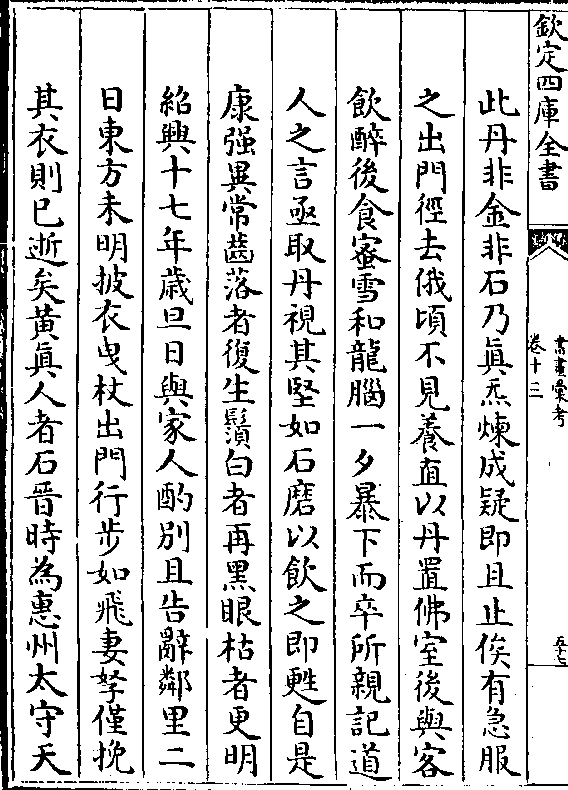 欽定四庫全書
書畫彙考
卷十三
五十七
此丹非金非石乃眞炁煉成疑即且止俟有急服
之出門徑去俄頃不見養直以丹置佛室後與客
飲醉後食蜜雪和龍腦一夕暴下而卒所親記道
人之言亟取丹視其堅如石磨以飲之即甦自是
康强異常齒落者復生鬚白者再黑眼枯者更明
紹興十七年歳旦日與家人酌别且告辭鄰里二
日東方未明披衣曳杖出門行步如飛妻孥僅挽
其衣則已逝矣黃眞人者石晉時為惠州太守天